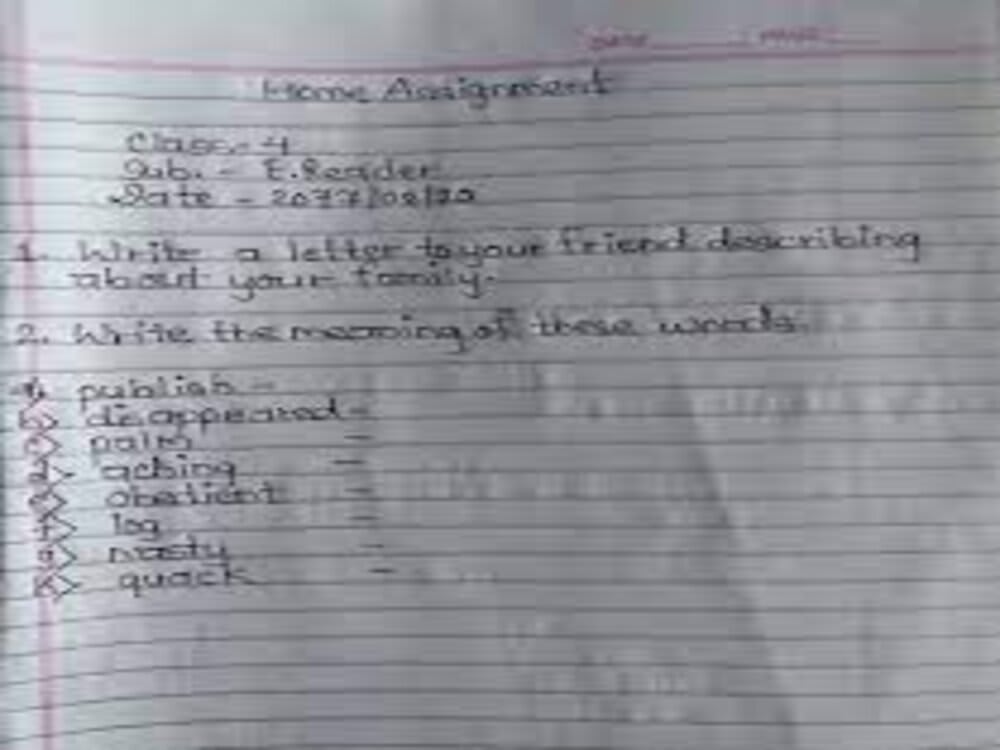 DATE PAGE
Home Assignment
Class - 4
Sub. - E. Reader
Date - 2077/08/20
1. Write a letter to your friend describing
about your family.
2. Write the meaning of these words.
a) publish -
b) disappeared -
c) palm -
d) aching -
e) obedient -
f) log -
g) nasty -
h) quack -